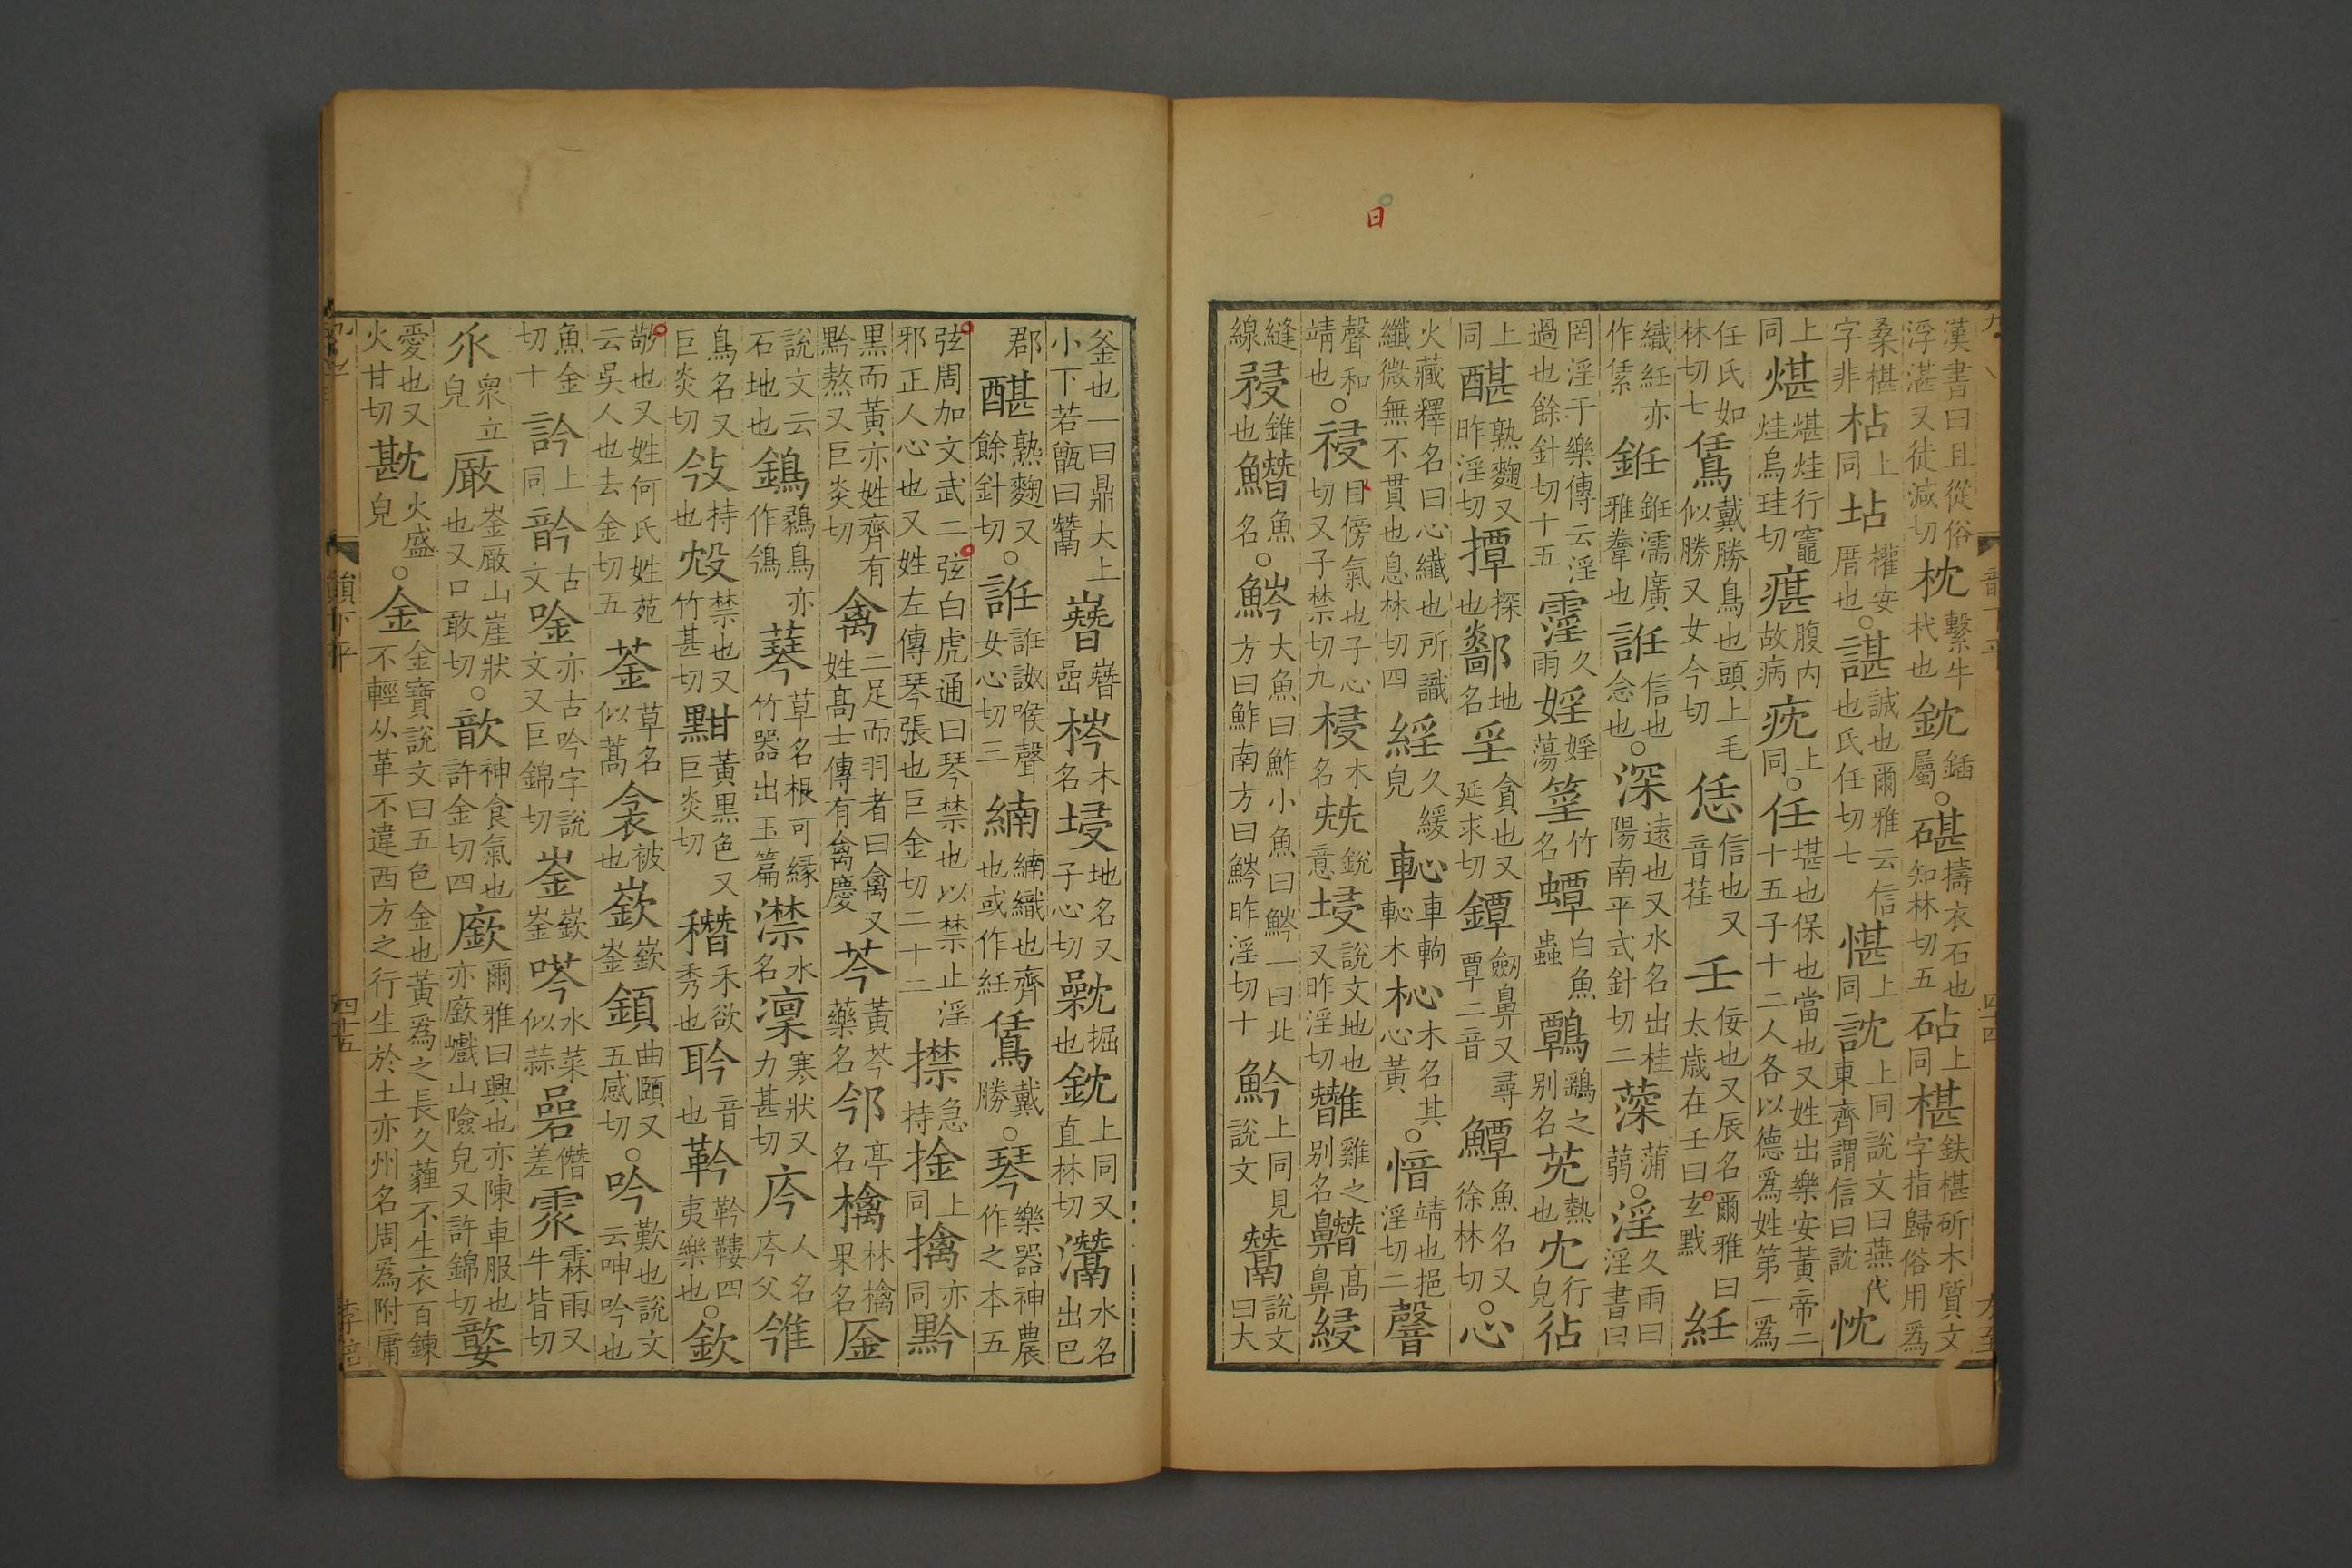 漢書曰且從俗浮湛又徒減切枕繫牛杙也鈂鍤屬○碪擣衣石也知林切五砧上同椹鈇椹斫木質文字指歸俗用爲
桑椹字非枮上同坫權安厝也○諶誠也爾雅云信也氏任切七愖上同訦上同說文曰燕代東齊謂信曰訦忱
上同煁煁烓行竈烓烏珪切㾛腹内故病上同○任堪也保也當也又姓出樂安黃帝二十五子十二人各以德爲姓第一爲
任氏如林切七鵀戴勝鳥也頭上毛似勝又女今切恁信也又音荏壬佞也又辰名爾雅曰太歲在壬曰玄黓紝
織紝亦作䋕銋銋濡廣雅韏也䛘信也念也○深遠也又水名出桂陽南平式針切二蒲蒻○淫久雨曰淫書曰
罔淫于樂傳云淫過也餘針切十五霪久雨婬婬蕩竹名蟫白魚蟲鷣鷂之別名熱也冘行皃
上同醓熟麴又昨淫切撢探也鄐地名㸒貪也又延求切鐔劒鼻又尋覃二音鱏魚名又徐林切○心
火藏釋名曰心纖也所識纖微無不貫也息林切四綅久緩皃車軥䡨木杺木名其心黃○愔靖也挹淫切二韾
聲和靖也○祲日傍氣也子心切又子禁切九梫木名兓銳意埐說文地也又昨淫切雞之別名高鼻綅
縫線祲錐也鱛魚名○䰼大魚曰鮓小魚曰䰼一曰北方曰鮓南方曰䰼昨淫切十魿上同見說文鬵說文曰大
釜也一曰鼎大上小下若甑曰鬵嶜嶜嵒梣木名埐地名又子心切掘也鈂上同又直林切灊水名出巴
郡醓熟麴又餘針切○䛘䛘諏喉聲女心切三繭織也齊也或作紝鵀戴勝○琴樂器神農作之本五
弦周加文武二弦白虎通曰琴禁也以禁止淫邪正人心也又姓左傳琴張也巨金切二十二㩒急持捦上同擒亦同黔
黑而黃亦姓齊有黔熬又巨炎切禽二足而羽者曰禽又姓高士傳有禽慶芩黃芩藥名亭名檎林檎果名
說文云石地也鵭鶨鳥亦作鳹草名根可緣竹器出玉篇澿水名凜寒狀又力甚切庈人名庈父雂
鳥名又巨炎切㩒持也禁也又竹甚切黚黃黑色又巨炎切禾欲秀也耹音也䩂䩂鞻四夷樂也○欽
敬也又姓何氏姓苑云吳人也去金切五菳草名似蒿衾被也嶔嶔崟顉曲頤又五感切○吟歎也說文云呻吟也
魚金切十訡上同䪩古文唫亦古吟字說文又巨錦切崟嶔崟水菜似蒜碞僭差霖雨又牛皆切
㐺眾立皃厰崟厰山崖狀也又口敢切○歆神食氣也許金切四廞爾雅曰興也亦陳車服也亦廞巇山險皃又許錦切
愛也又火甘切火盛皃○金金寶說文曰五色金也黃爲之長久薶不生衣百鍊不輕从革不違西方之行生於土亦州名周爲附庸